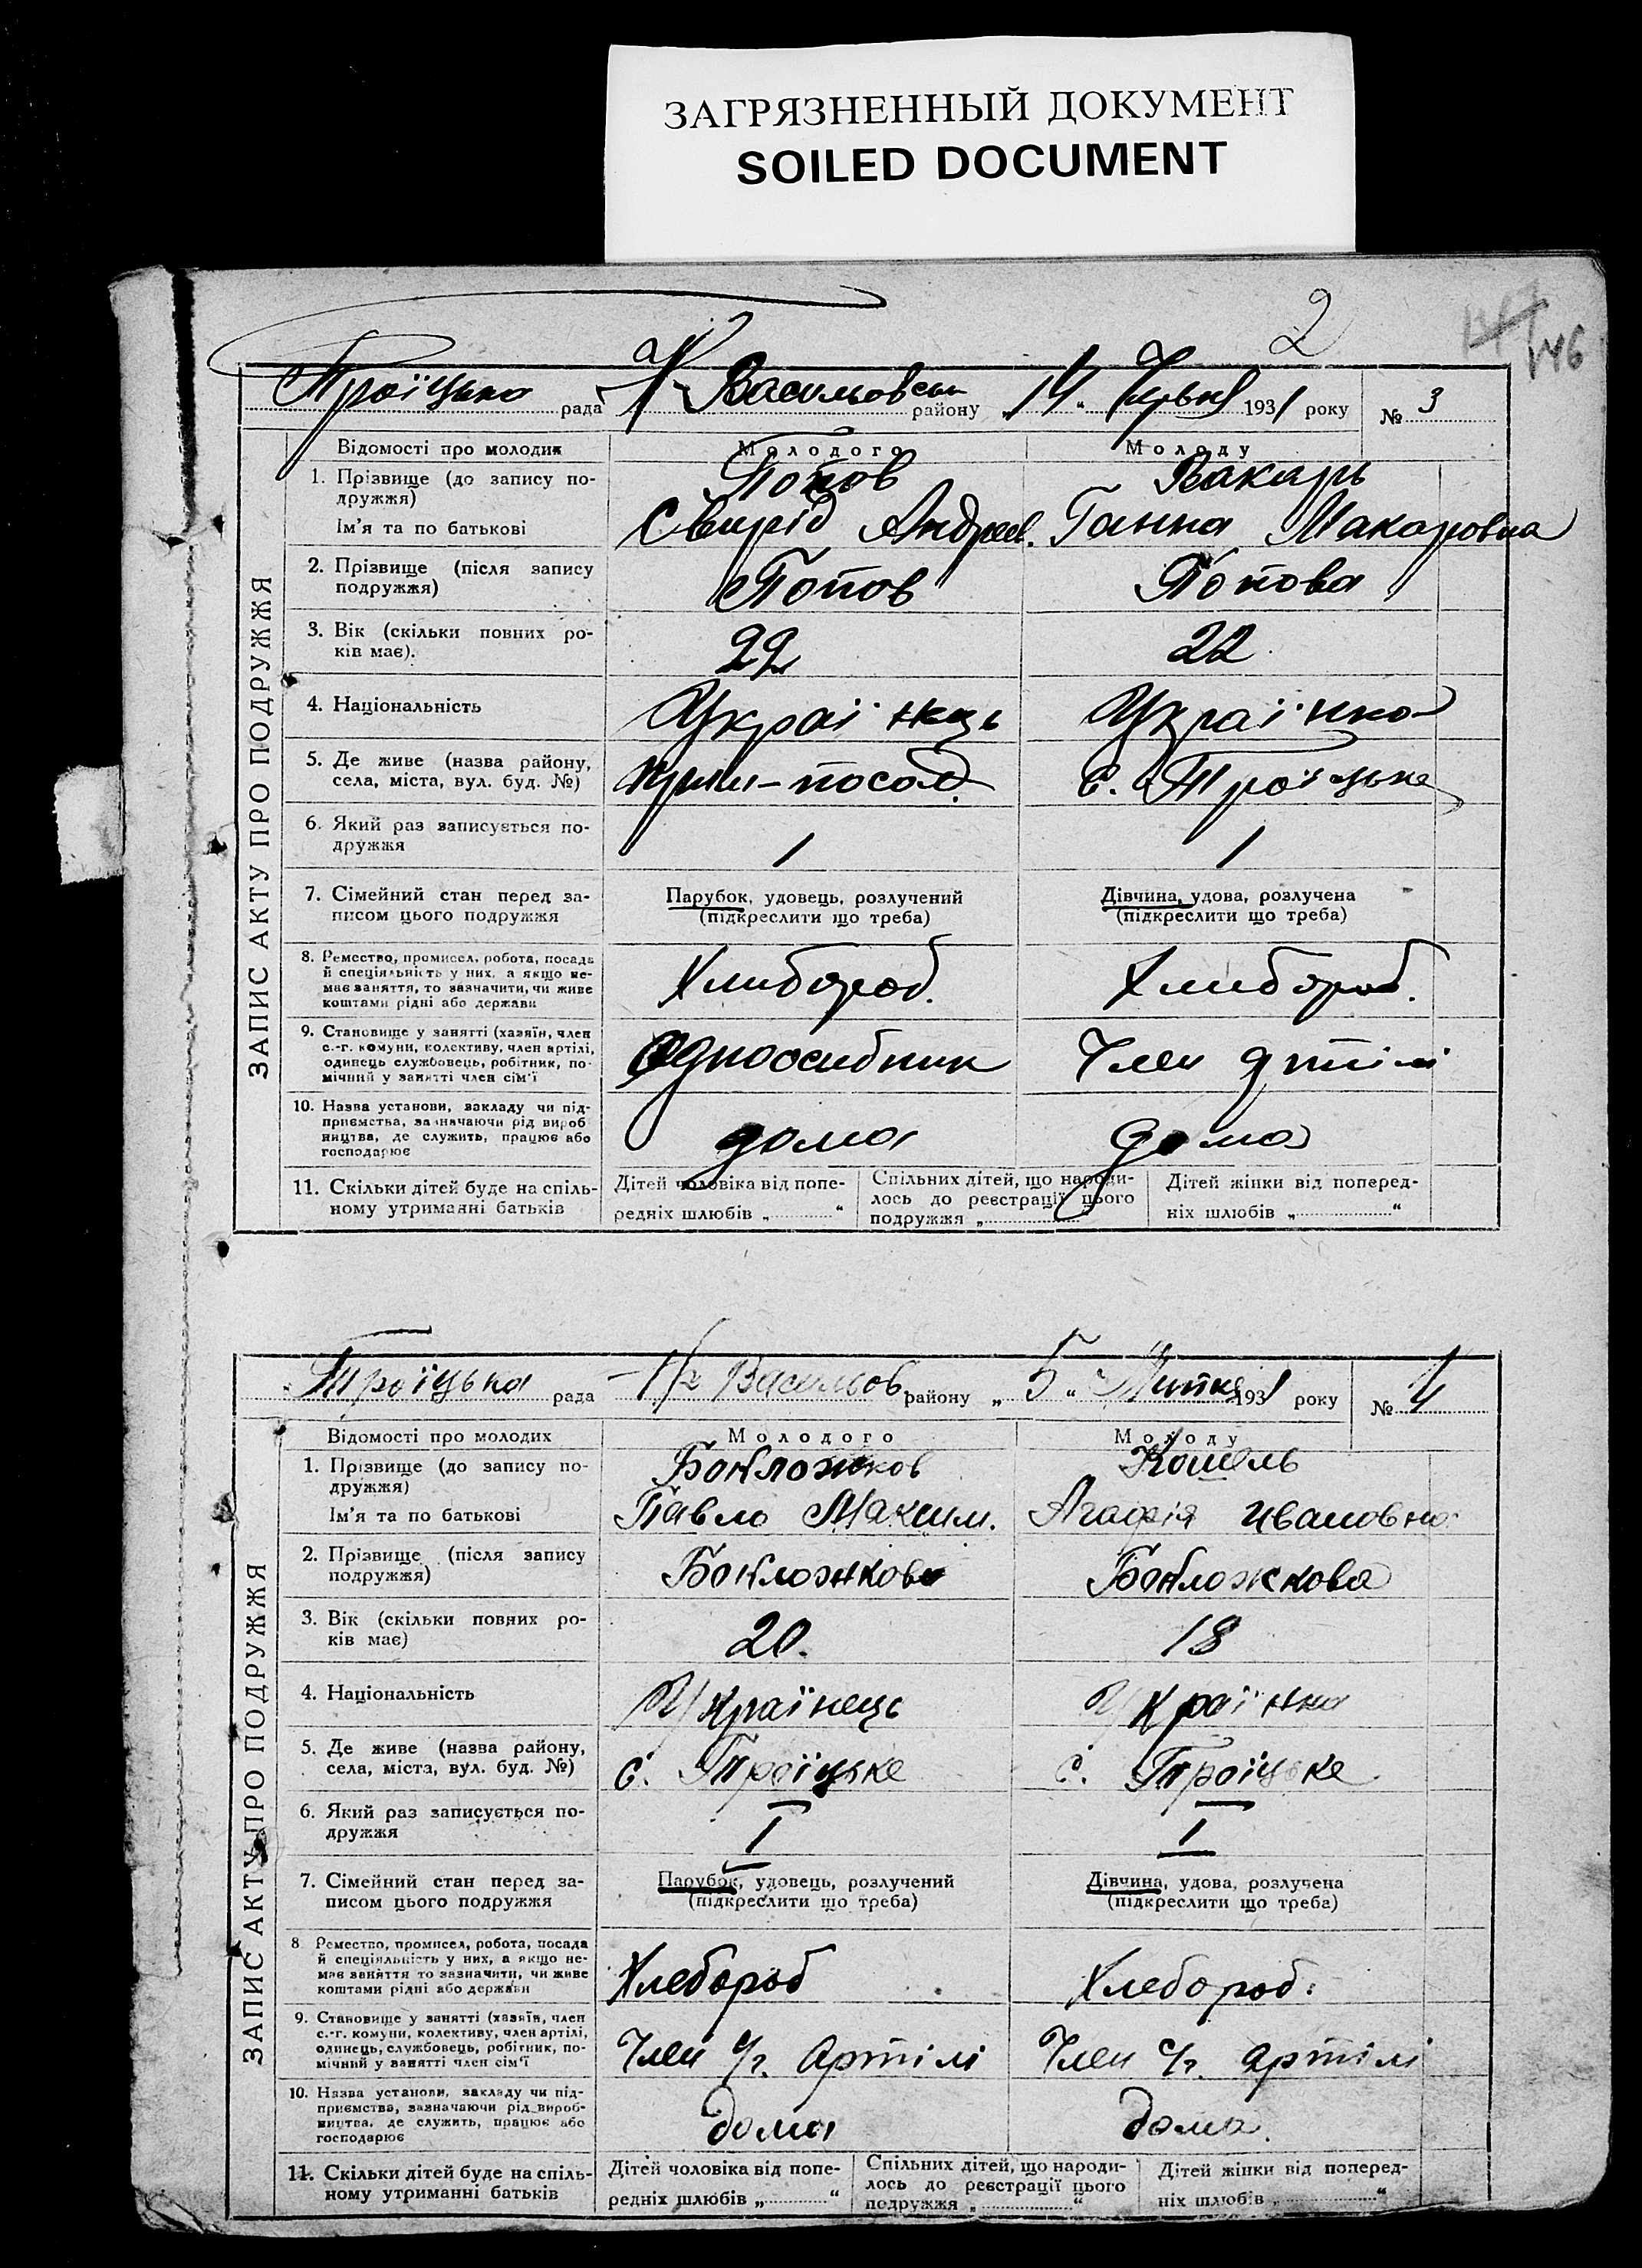 ЗАГРЯЗНЕННЫЙ ДОКУМЕНТ
SOILED DOCUMENT
2
146
Троїцька рада Васильовськ району 14 1931 року № 3
ЗАПИС АКТУ ПРО ПОДРУЖЖЯ
Відомості про молодих Молодого Молоду
1. Прізвище (до запису по- Попов Вакарь
дружжя)
Ім'я та по батькові Свирід Андреев. Ганна Макаровна
2. Прізвище (після запису Попов Попова
подружжя)
3. Вік (скільки повних ро- 22 22
ків має).
4. Національність Украінць Украінка
5. Де живе (назва району, посад. с. Троїцьке
села, міста, вул. буд. №)
6. Який раз записується по- 1 1
дружжя
7. Сімейний стан перед за- Парубок, удовець, розлучений Дівчина, удова, розлучена
писом цього подружжя (підкреслити що треба) (підкреслити що треба)
8. Ремество, промисел, робота, посада Хлибороб. Хлибороб.
й спеціяльність у них, а якщо не-
має заняття, то зазначити, чи живе
коштами рідні або держави
9. Становище у занятті (хазяїн, член Одноосибник Член артілі
с.-г. комуни, колективу, член артілі,
одинець службовець, робітник, по-
мічний у занятті член сім'ї
10. Назва установи, закладу чи під- дома дома
приємства, зазначаючи рід вироб
ництва, де служить, працює або
господарює
11. Скільки дітей буде на спіль- Дітей чоловіка від попе- Спільних дітей, що народи- Дітей жінки від поперед-
ному утриманні батьків редніх шлюбів „ “ лось до реєстрації цього ніх шлюбів „ “
подружжя „
Троїцька рада Васильов району „ 5 “ Липня 1931 року № 4
ЗАПИС АКТУ ПРО ПОДРУЖЖЯ
Відомості про молодих Молодого Молоду
1. Прізвище (до запису по- Бокложков Кошель
дружжя)
Ім'я та по батькові Павло Максим. Агафія Ивановна
2. Прізвище (після запису Бокложков Бокложкова
подружжя)
3. Вік (скільки повних ро- 20. 18
ків має)
4. Національність Українець Українка
5. Де живе (назва району, с. Троїцьке с. Троїцьке
села, міста, вул. буд. №)
6. Який раз записується по- I I
дружжя
7. Сімейний стан перед за- Парубок, удовець, розлучений Дівчина, удова, розлучена
писом цього подружжя (підкреслити що треба) (підкреслити що треба)
8 Ремество, промисел, робота, посада Хлебороб Хлебороб.
й спеціяльність у них, а якщо не-
має заняття то зазначити, чи живе
коштами рідні або держави
9. Становище у занятті (хазяїн, член Член с/г. артілі Член с/г. артілі
с.-г. комуни, колективу, член артілі,
одинець, службовець, робітник, по-
мічний у занятті член сім'ї
10. Назва установи, закладу чи під- дома дома.
приємства, зазначаючи рід вироб-
ництва, де служить, працює або
господарює
11. Скільки дітей буде на спіль- Дітей чоловіка від попе- Спільних дітей, що народи- Дітей жінки від поперед-
ному утриманні батьків редніх шлюбів „ “ лось до реєстрації цього ніх шлюбів „ “
подружжя „ “